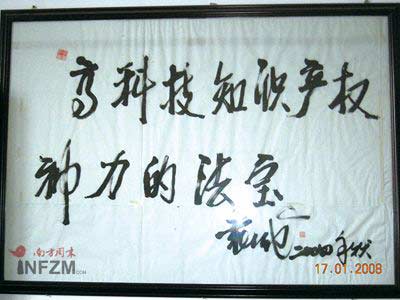 高科技知识产权
神力的法宝
2000年伏
南方周末
INFZM.COM
17.01.2008